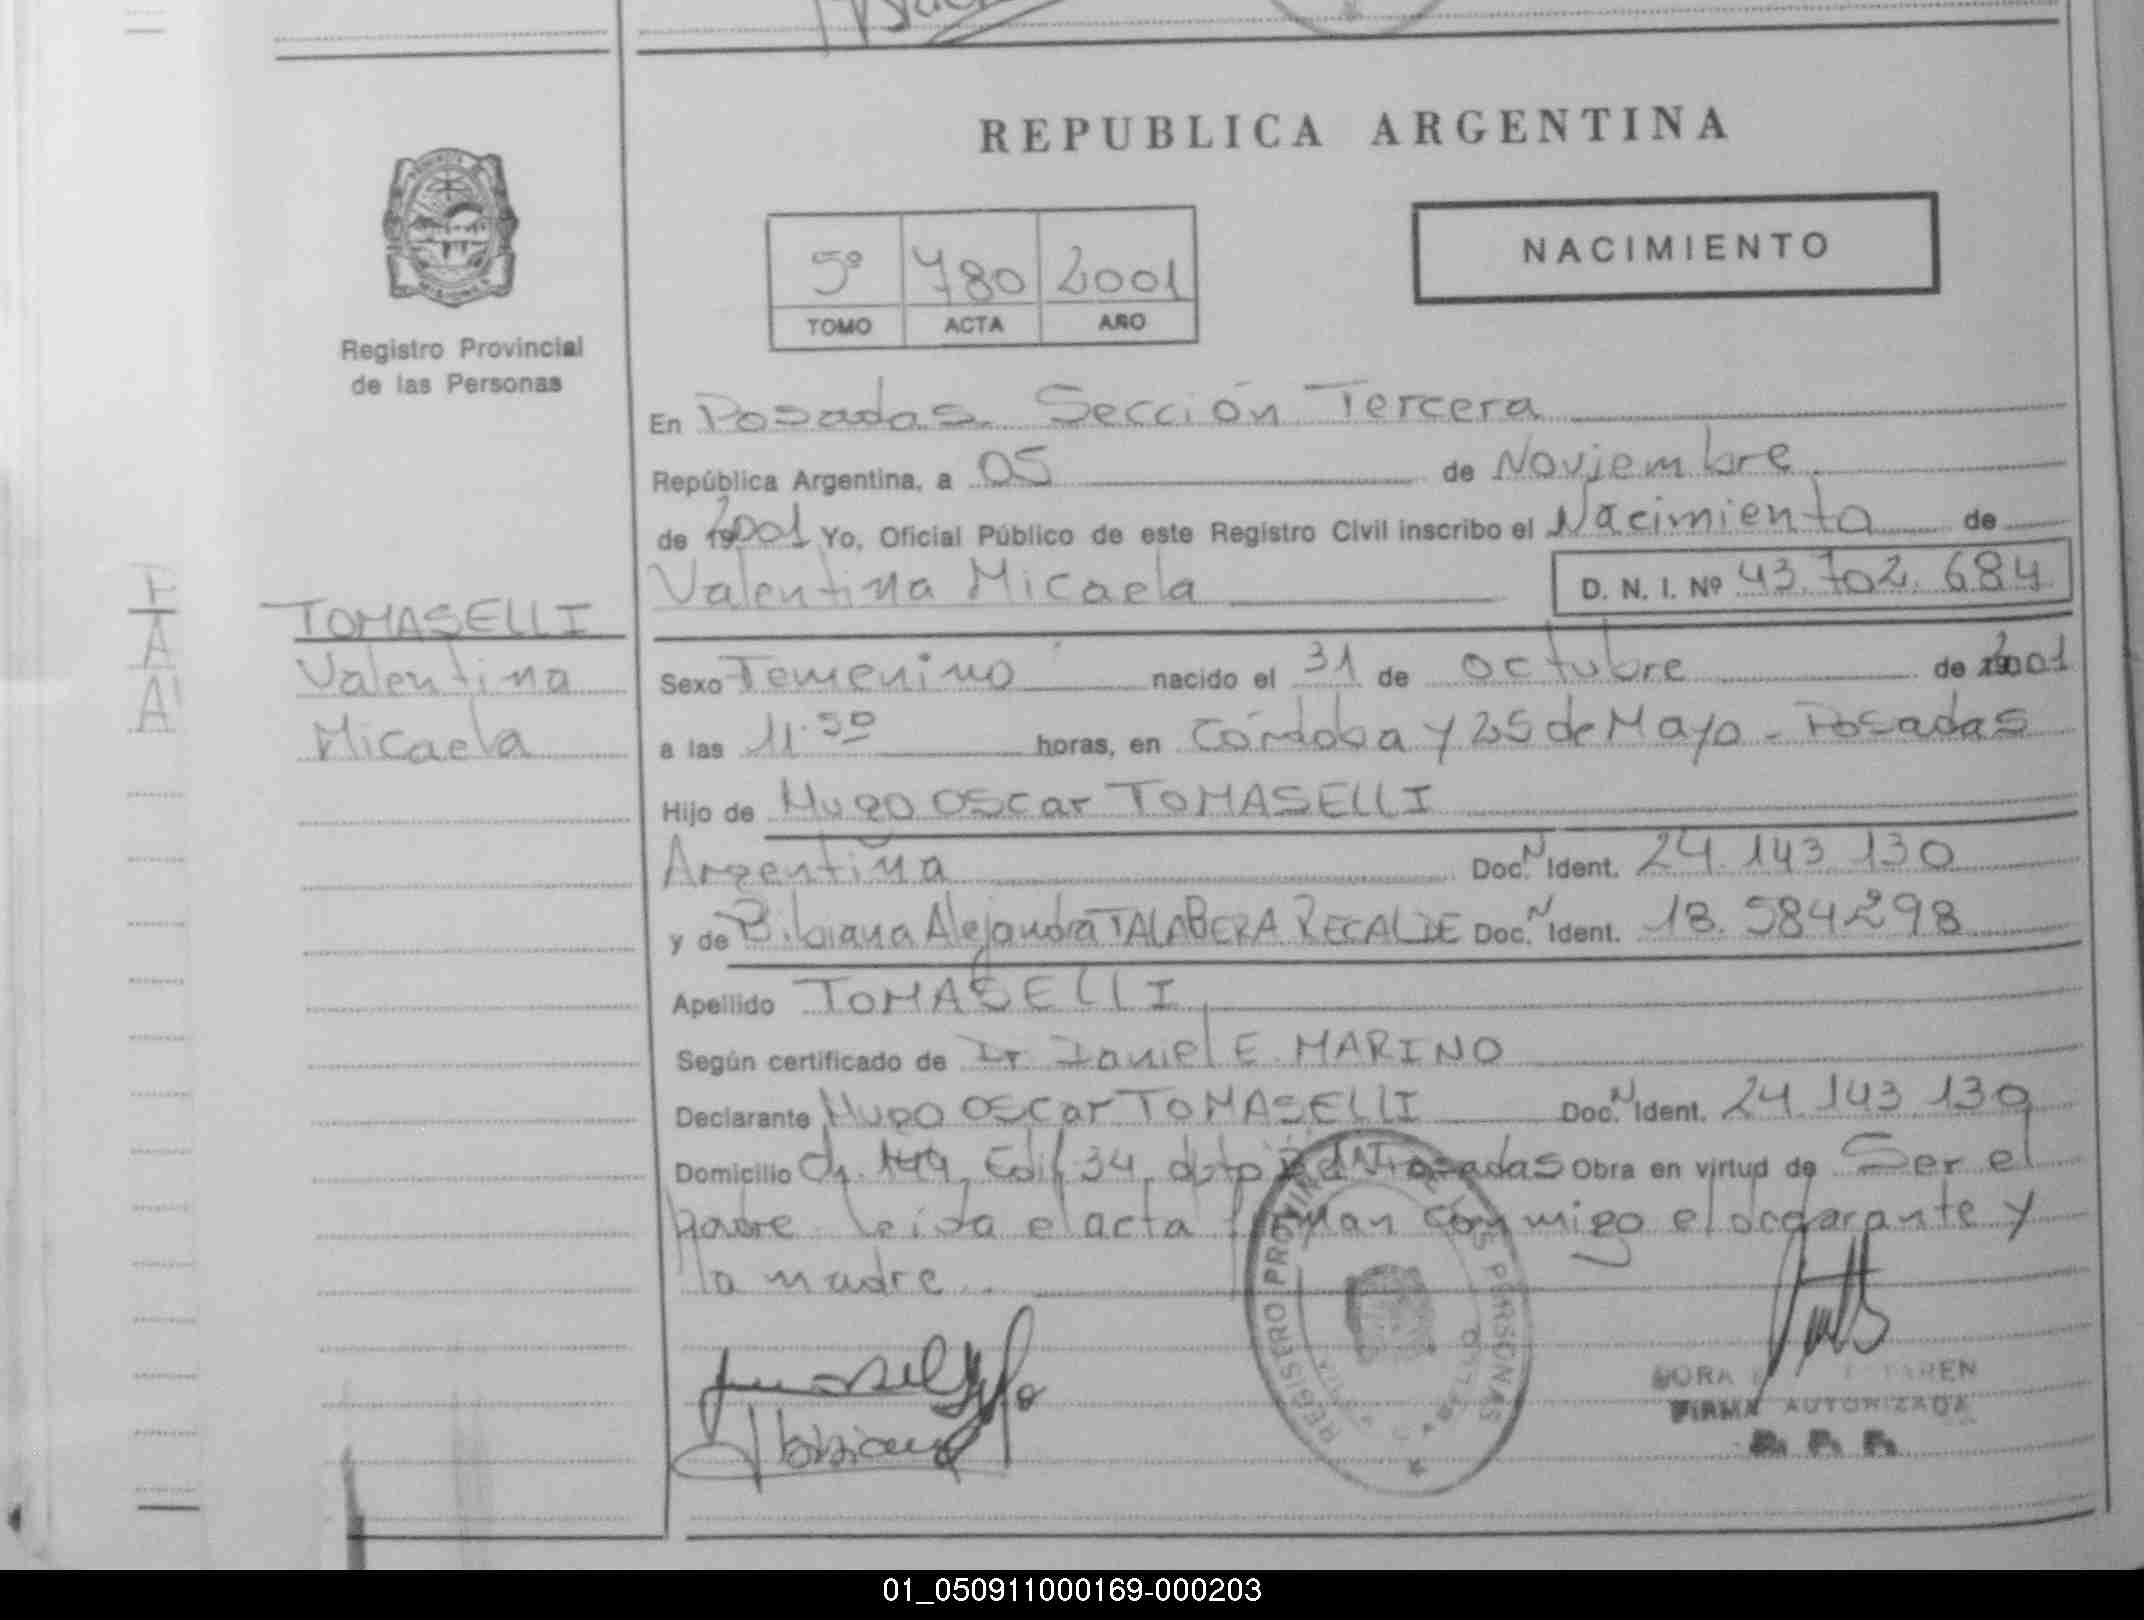 REPUBLICA ARGENTINA
NACIMIENTO
5º 780 2001
TOMO ACTA AÑO
Registro Provincial
de las Personas
En Posadas Sección Tercera
República Argentina, a 05 de Noviembre
de 2001 Yo, Oficial Público de este Registro Civil inscribo el Nacimiento de
Valentina Micaela D. N. I. Nº 43.702.684
TOMASELLI
Valentina
Micaela
Sexo Femenino nacido el 31 de octubre de 2001
a las 11.50 horas, en Córdoba y 25 de Mayo - Posadas
Hijo de Hugo Oscar TOMASELLI
Argentina Doc. N Ident. 24.143.130
y de Bibiana Alejandra TALABERA RECALDE Doc. N Ident. 18.584298
Apellido TOMASELLI
Según certificado de Dr Daniel E. MARINO
Declarante Hugo Oscar TOMASELLI Doc. N Ident. 24.143.130
Domicilio Ch. Edif 34 dpto Posadas Obra en virtud de Ser el
padre. Leída el acta firman conmigo el declarante y
la madre.
REGISTRO PROVINCIAL DE LAS PERSONAS
FIRMA AUTORIZADA
01_050911000169-000203